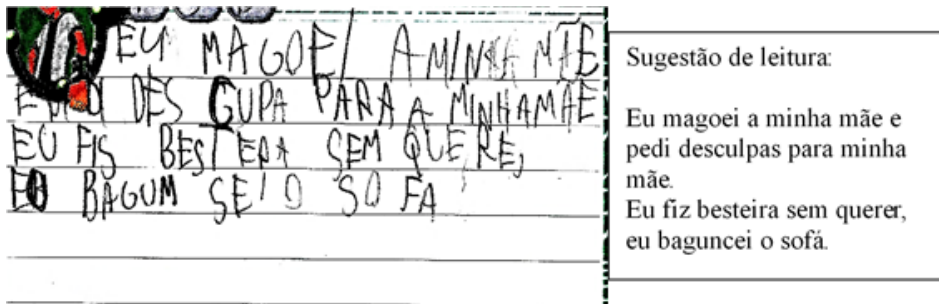 EU MAGOEI A MINHA MÃE
DES GUPA PARA A MINHA MÃE
EU FIS BESTERA SEM QUERE,
EO BAGUM SEI O SO FA
Sugestão de leitura:
Eu magoei a minha mãe e
pedi desculpas para minha
mãe.
Eu fiz besteira sem querer,
eu baguncei o sofá.